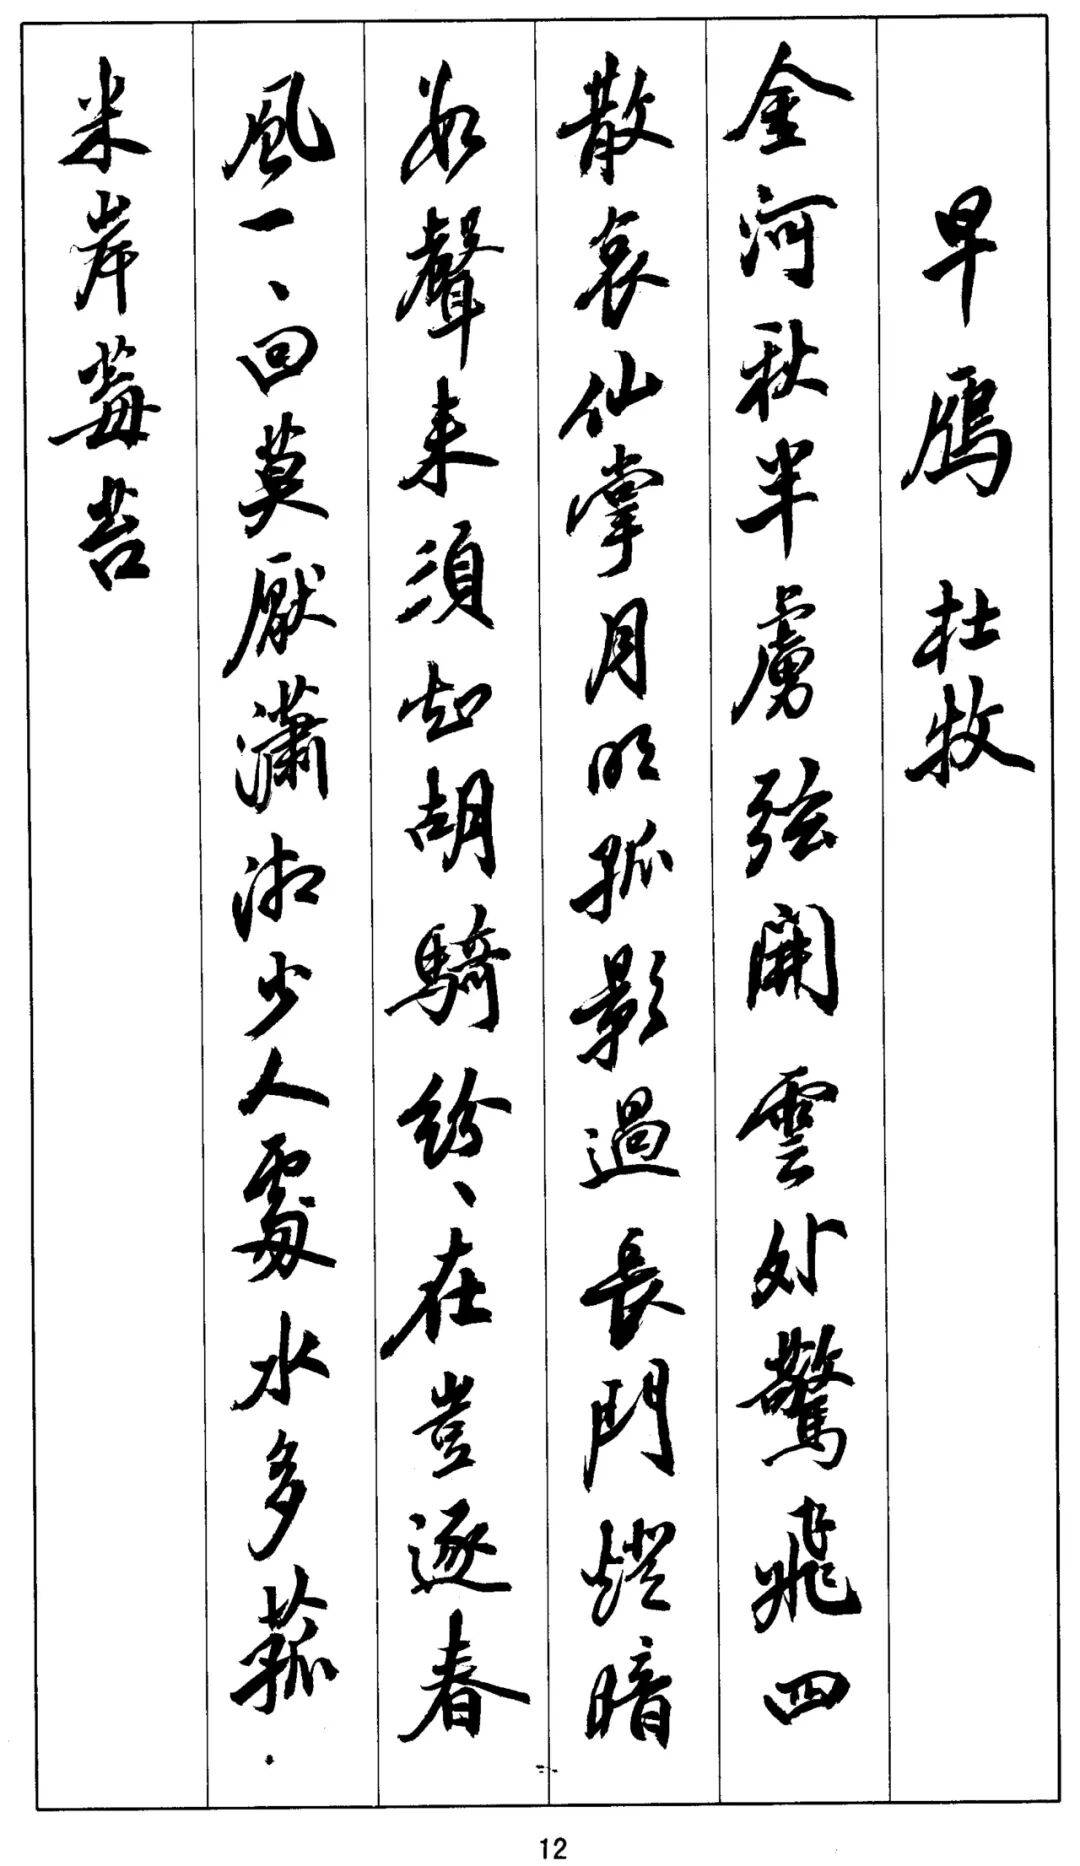 早鴈 杜牧
金河秋半虜弦開雲外驚飛四
散哀仙掌月明孤影過長門燈暗
數聲來須知胡騎紛、在豈逐春
風一、回莫厭瀟湘少人處水多菰
米岸莓苔
12